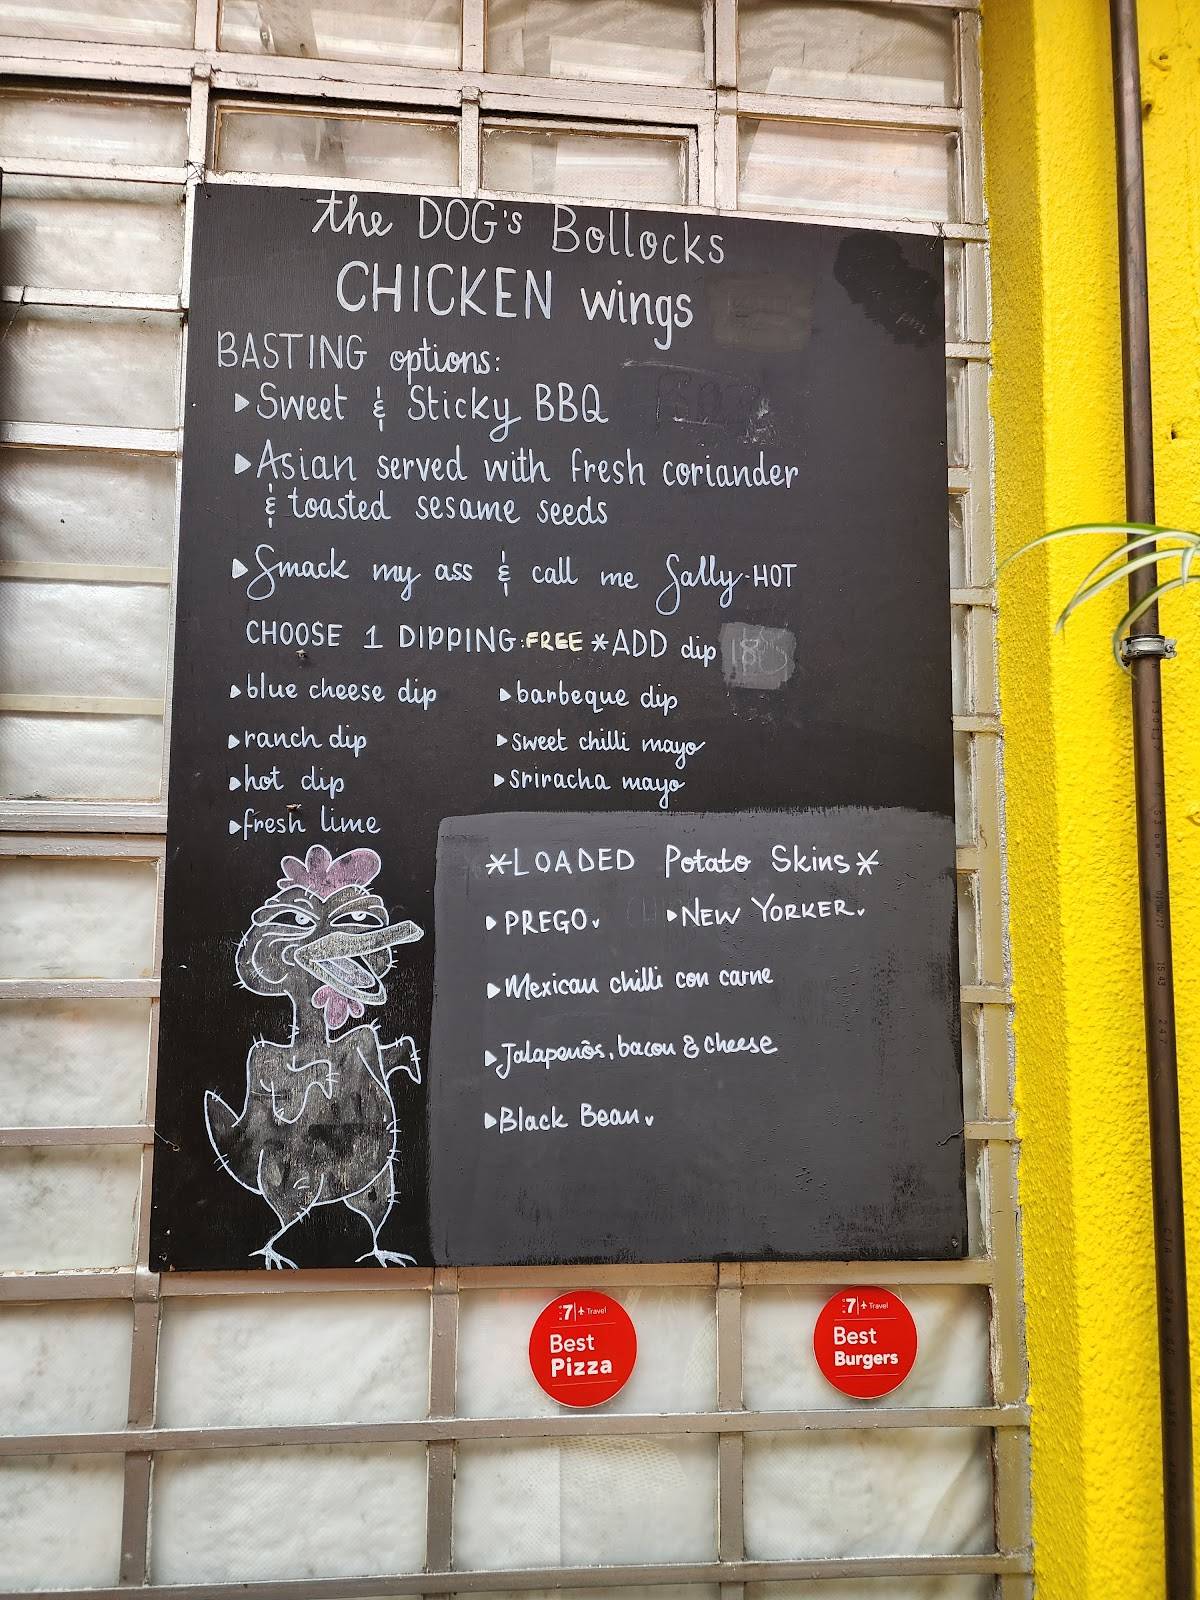 the DOG's Bollocks
CHICKEN wings
BASTING options:
Sweet & Sticky BBQ
Asian served with fresh coriander
& toasted sesame seeds
Smack my ass & call me Sally-HOT
CHOOSE 1 DIPPING: FREE *ADD dip
blue cheese dip
ranch dip
hot dip
fresh lime
barbeque dip
sweet chilli mayo
sriracha mayo
*LOADED Potato Skins*
PREGO. NEW YORKER.
Mexican chilli con carne
Jalapenõs, bacon & cheese
Black Bean.
7 Travel
Best
Pizza
7 Travel
Best
Burgers